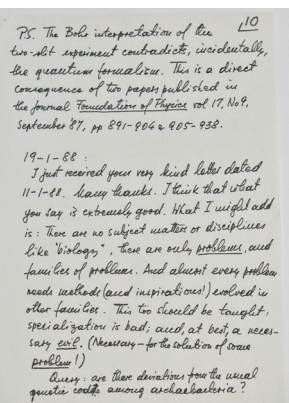 10
P.S. The Bohr interpretation of the
two-slit experiment contradicts, incidentally,
the quantum formalism. This is a direct
consequence of two papers published in
the journal Foundation of Physics vol 17, No 9,
September '87, pp 891-904 & 905-938.
19-1-88 :
I just received your very kind letter dated
11-1-88. Many thanks. I think that what
you say is extremely good. What I might add
is : There are no subject matters or disciplines
like "biology", there are only problems, and
families of problems. And almost every problem
needs methods (and inspirations!) evolved in
other families. This too should be taught;
specialization is bad; and, at best, a neces-
sary evil. (Necessary – for the solution of some
problem!)
Query : are there deviations from the usual
genetic code among archaebacteria?